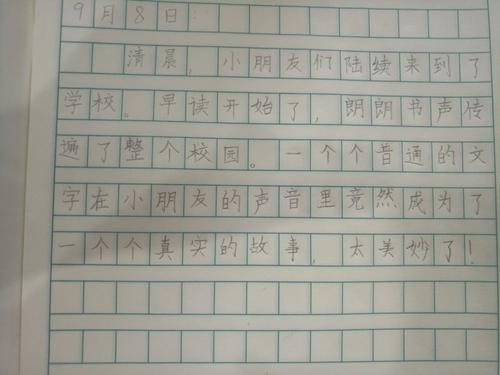 9月8日
清晨，小朋友们陆续来到了
学校。早读开始了，朗朗书声传
遍了整个校园。一个个普通的文
字在小朋友的声音里竟然成为了
一个个真实的故事，太美妙了！